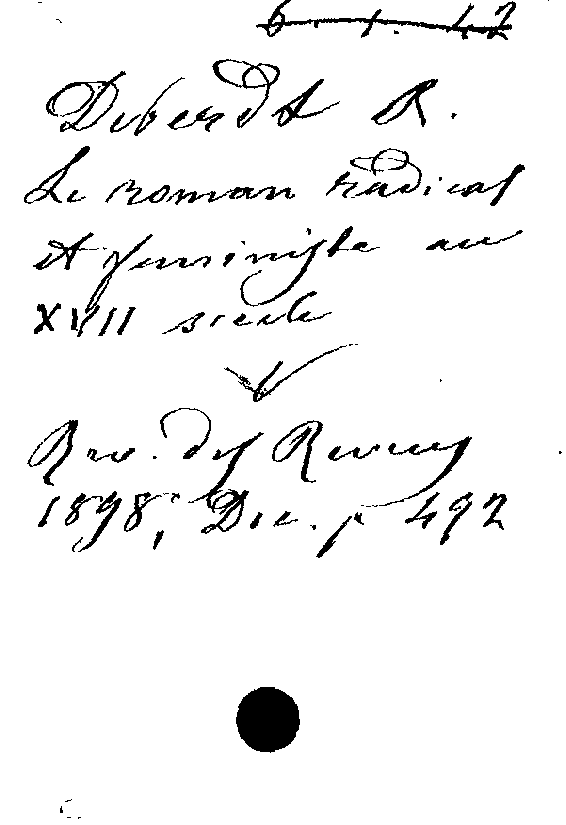 Deberdt R.
Le roman radical
et feministe au
XVII siecle
Rev. des Revues
1898, Dec. p 492